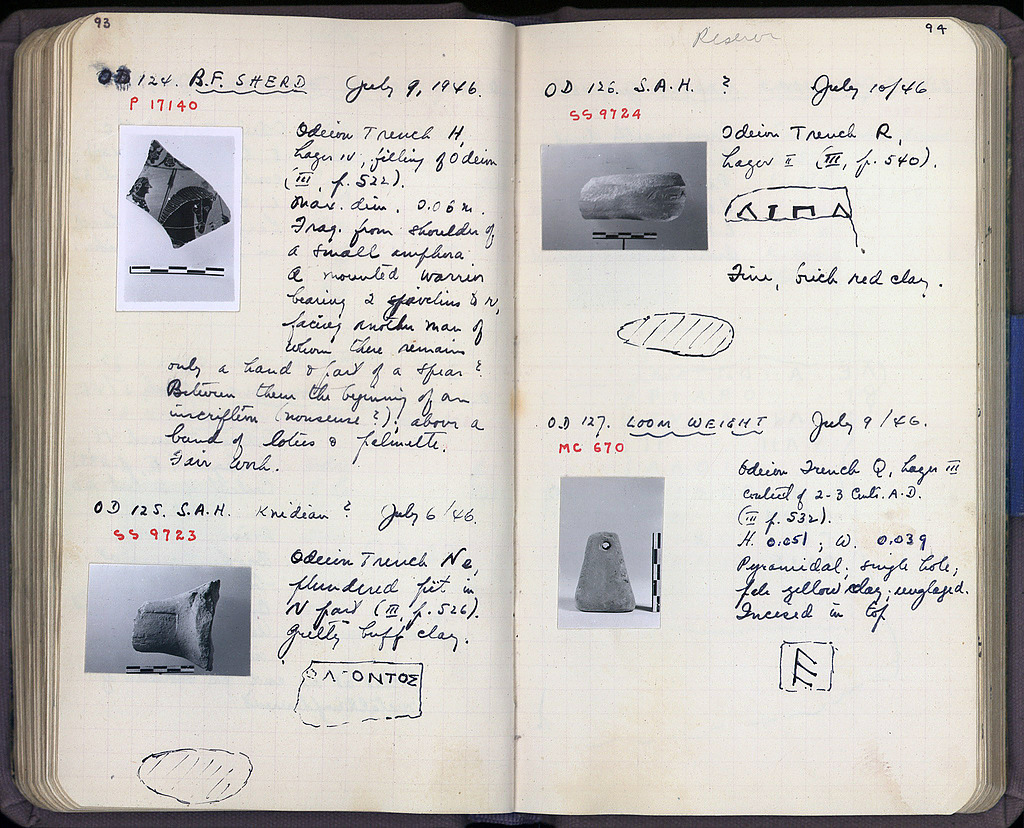 93
OD 124. B.F. SHERD July 9, 1946.
P 17140
Odeion Trench H,
Layer IV, filling of Odeion
(III, p. 522).
Max. dim. 0.06 m.
Frag. from shoulder of
a small amphora.
A mounted warrior
bearing 2 javelins to r,
facing another man of
whom there remains
only a hand & part of a spear ?
Between them the beginning of an
inscription (nonsense ?); above a
band of lotus & palmette.
Fair work.
OD 125. S.A.H. Knidian ? July 6/46.
SS 9723
Odeion Trench Ne,
plundered pit in
N part (III, p. 526).
Gritty buff clay.
ΟΝΤΟΣ
94
Reserv
OD 126. S.A.H. ? July 10/46
SS 9724
Odeion Trench R,
Layer II (III, p. 540).
ΔΙΠΑ
Fine, brick red clay.
OD 127. LOOM WEIGHT July 9/46.
MC 670
Odeion Trench Q, Layer III
context of 2-3 Cents. A.D.
(III p. 532).
H. 0.051; W. 0.039
Pyramidal; single hole;
pale yellow clay; unglazed.
Incised in top